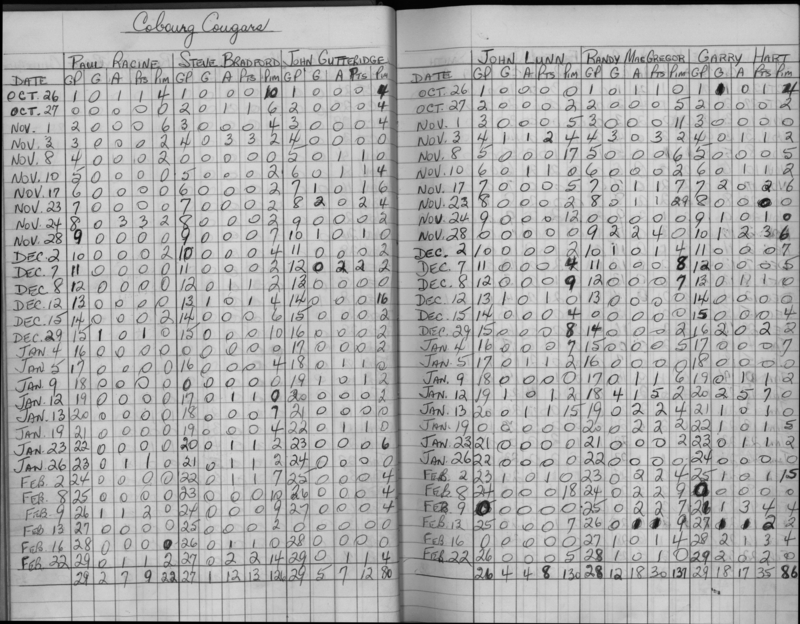 Cobourg Cougars
PAUL RACINE STEVE BRADFORD JOHN GUTTERIDGE
DATE GP G A Pts Pim GP G A Pts Pim GP G A Pts Pim
OCT. 26 1 0 1 1 4 1 0 0 0 10 1 0 0 0 4
OCT. 27 0 0 0 0 0 2 0 1 1 6 2 0 0 0 4
NOV. 1 2 0 0 0 6 3 0 0 0 4 3 0 0 0 4
NOV. 3 3 0 0 0 2 4 0 3 3 2 4 0 0 0 0
NOV. 8 4 0 0 0 2 0 0 0 0 0 5 0 1 1 0
NOV. 10 5 0 0 0 0 5 0 0 0 2 6 0 1 1 4
NOV. 17 6 0 0 0 0 6 0 0 0 2 7 1 0 1 6
NOV. 23 7 0 0 0 0 7 0 0 0 2 8 2 0 2 4
NOV. 24 8 0 3 3 2 8 0 0 0 2 9 0 0 0 2
NOV. 28 9 0 0 0 0 9 0 0 0 7 10 1 0 1 0
DEC. 2 10 0 0 0 2 10 0 0 0 4 11 0 0 0 2
DEC. 7 11 0 0 0 0 11 0 0 0 2 12 0 2 2 2
DEC. 8 12 0 0 0 0 12 0 1 1 2 13 0 0 0 0
DEC. 12 13 0 0 0 0 13 1 0 1 4 14 0 0 0 16
DEC. 15 14 0 0 0 2 14 0 0 0 6 15 0 0 0 2
DEC. 29 15 1 0 1 0 15 0 0 0 10 16 0 0 0 2
JAN 4 16 0 0 0 0 0 0 0 0 0 17 0 0 0 2
JAN 5 17 0 0 0 0 16 0 0 0 4 18 0 1 1 0
JAN. 9 18 0 0 0 0 0 0 0 0 0 19 1 0 1 2
JAN. 12 19 0 0 0 0 17 0 1 1 0 20 0 0 0 2
JAN. 13 20 0 0 0 0 18 0 0 0 7 21 0 0 0 0
JAN. 19 21 0 0 0 0 19 0 0 0 4 22 0 1 1 0
JAN 23 22 0 0 0 0 20 0 1 1 2 23 0 0 0 6
JAN 26 23 0 1 1 0 21 0 1 1 2 24 0 0 0 0
FEB. 2 24 0 0 0 0 22 0 1 1 7 25 0 0 0 4
FEB. 8 25 0 0 0 0 23 0 0 0 12 26 0 0 0 4
FEB. 9 26 1 1 2 0 24 0 0 0 9 27 0 0 0 4
FEB 13 27 0 0 0 0 25 0 0 0 2 0 0 0 0 0
FEB 16 28 0 0 0 0 26 0 1 1 0 28 0 0 0 0
FEB. 22 29 0 1 1 2 27 0 2 2 14 29 0 1 1 4
29 2 7 9 22 27 1 12 13 126 29 5 7 12 80
JOHN LUNN RANDY MACGREGOR GARRY HART
DATE GP G A Pts Pim GP G A Pts Pim GP G A Pts Pim
OCT. 26 1 0 0 0 0 1 0 1 1 0 1 1 0 1 4
OCT. 27 2 0 0 0 2 2 0 0 0 5 2 0 0 0 2
NOV. 1 3 0 0 0 5 3 0 0 0 11 3 0 0 0 0
NOV. 3 4 1 1 2 4 4 3 0 3 2 4 0 1 1 2
NOV. 8 5 0 0 0 17 5 0 0 0 6 5 0 0 0 5
NOV. 10 6 0 1 1 0 6 0 0 0 2 6 0 1 1 2
NOV. 17 7 0 0 0 5 7 0 1 1 7 7 2 0 2 6
NOV. 23 8 0 0 0 2 8 0 1 1 29 8 0 0 0 0
NOV. 24 9 0 0 0 12 0 0 0 0 0 9 1 0 1 0
NOV. 28 0 0 0 0 0 9 2 2 4 0 10 1 2 3 6
DEC. 2 10 0 0 0 2 10 1 0 1 4 11 0 0 0 7
DEC. 7 11 0 0 0 4 11 0 0 0 8 12 0 0 0 5
DEC. 8 12 0 0 0 9 12 0 0 0 7 13 0 1 1 0
DEC. 12 13 1 0 1 0 13 0 0 0 0 14 0 0 0 0
DEC. 15 14 0 0 0 4 0 0 0 0 0 15 0 0 0 4
DEC. 29 15 0 0 0 8 14 0 0 0 2 16 2 0 2 2
JAN 4 16 0 0 0 7 15 0 0 0 5 17 0 0 0 7
JAN. 5 17 0 1 1 2 16 0 0 0 0 18 0 0 0 0
JAN. 9 18 0 0 0 0 17 0 1 1 6 19 0 1 1 2
JAN. 12 19 1 0 1 2 18 4 1 5 2 20 2 5 7 0
JAN. 13 20 0 1 1 15 19 0 2 2 4 21 1 0 1 0
JAN. 19 0 0 0 0 0 20 0 2 2 2 22 1 0 1 5
JAN. 23 21 0 0 0 0 21 0 0 0 2 23 0 1 1 2
JAN. 26 22 0 0 0 0 22 0 0 0 0 24 0 0 0 0
FEB. 2 23 1 0 1 0 23 0 2 2 4 25 1 0 1 15
FEB. 8 24 0 0 0 18 24 0 2 2 9 0 0 0 0 0
FEB. 9 0 0 0 0 0 25 0 2 2 7 26 1 3 4 4
FEB. 13 25 0 0 0 7 26 0 1 1 9 27 1 1 2 2
FEB. 16 0 0 0 0 0 27 1 0 1 4 28 2 1 3 4
FEB. 22 26 0 0 0 5 28 1 0 1 0 29 2 0 2 0
26 4 4 8 130 28 12 18 30 137 29 18 17 35 86